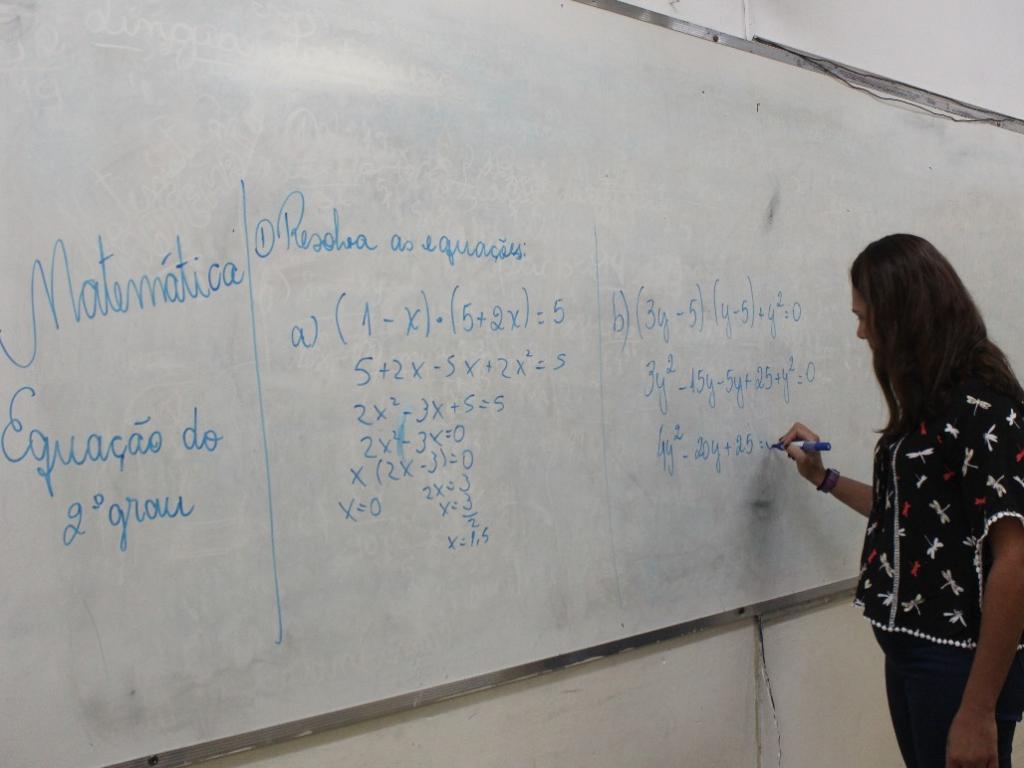 Matemática
Equação do
2º grau
1) Resolva as equações:
a) (1 - x) • (5 + 2x) = 5
5 + 2x - 5x + 2x² = 5
2x² - 3x + 5 = 5
2x² - 3x = 0
x (2x - 3) = 0
x = 0
2x = 3
x = 3/2
x = 1,5
b) (3y - 5) · (y - 5) + y² = 0
3y² - 15y - 5y + 25 + y² = 0
4y² - 20y + 25 =